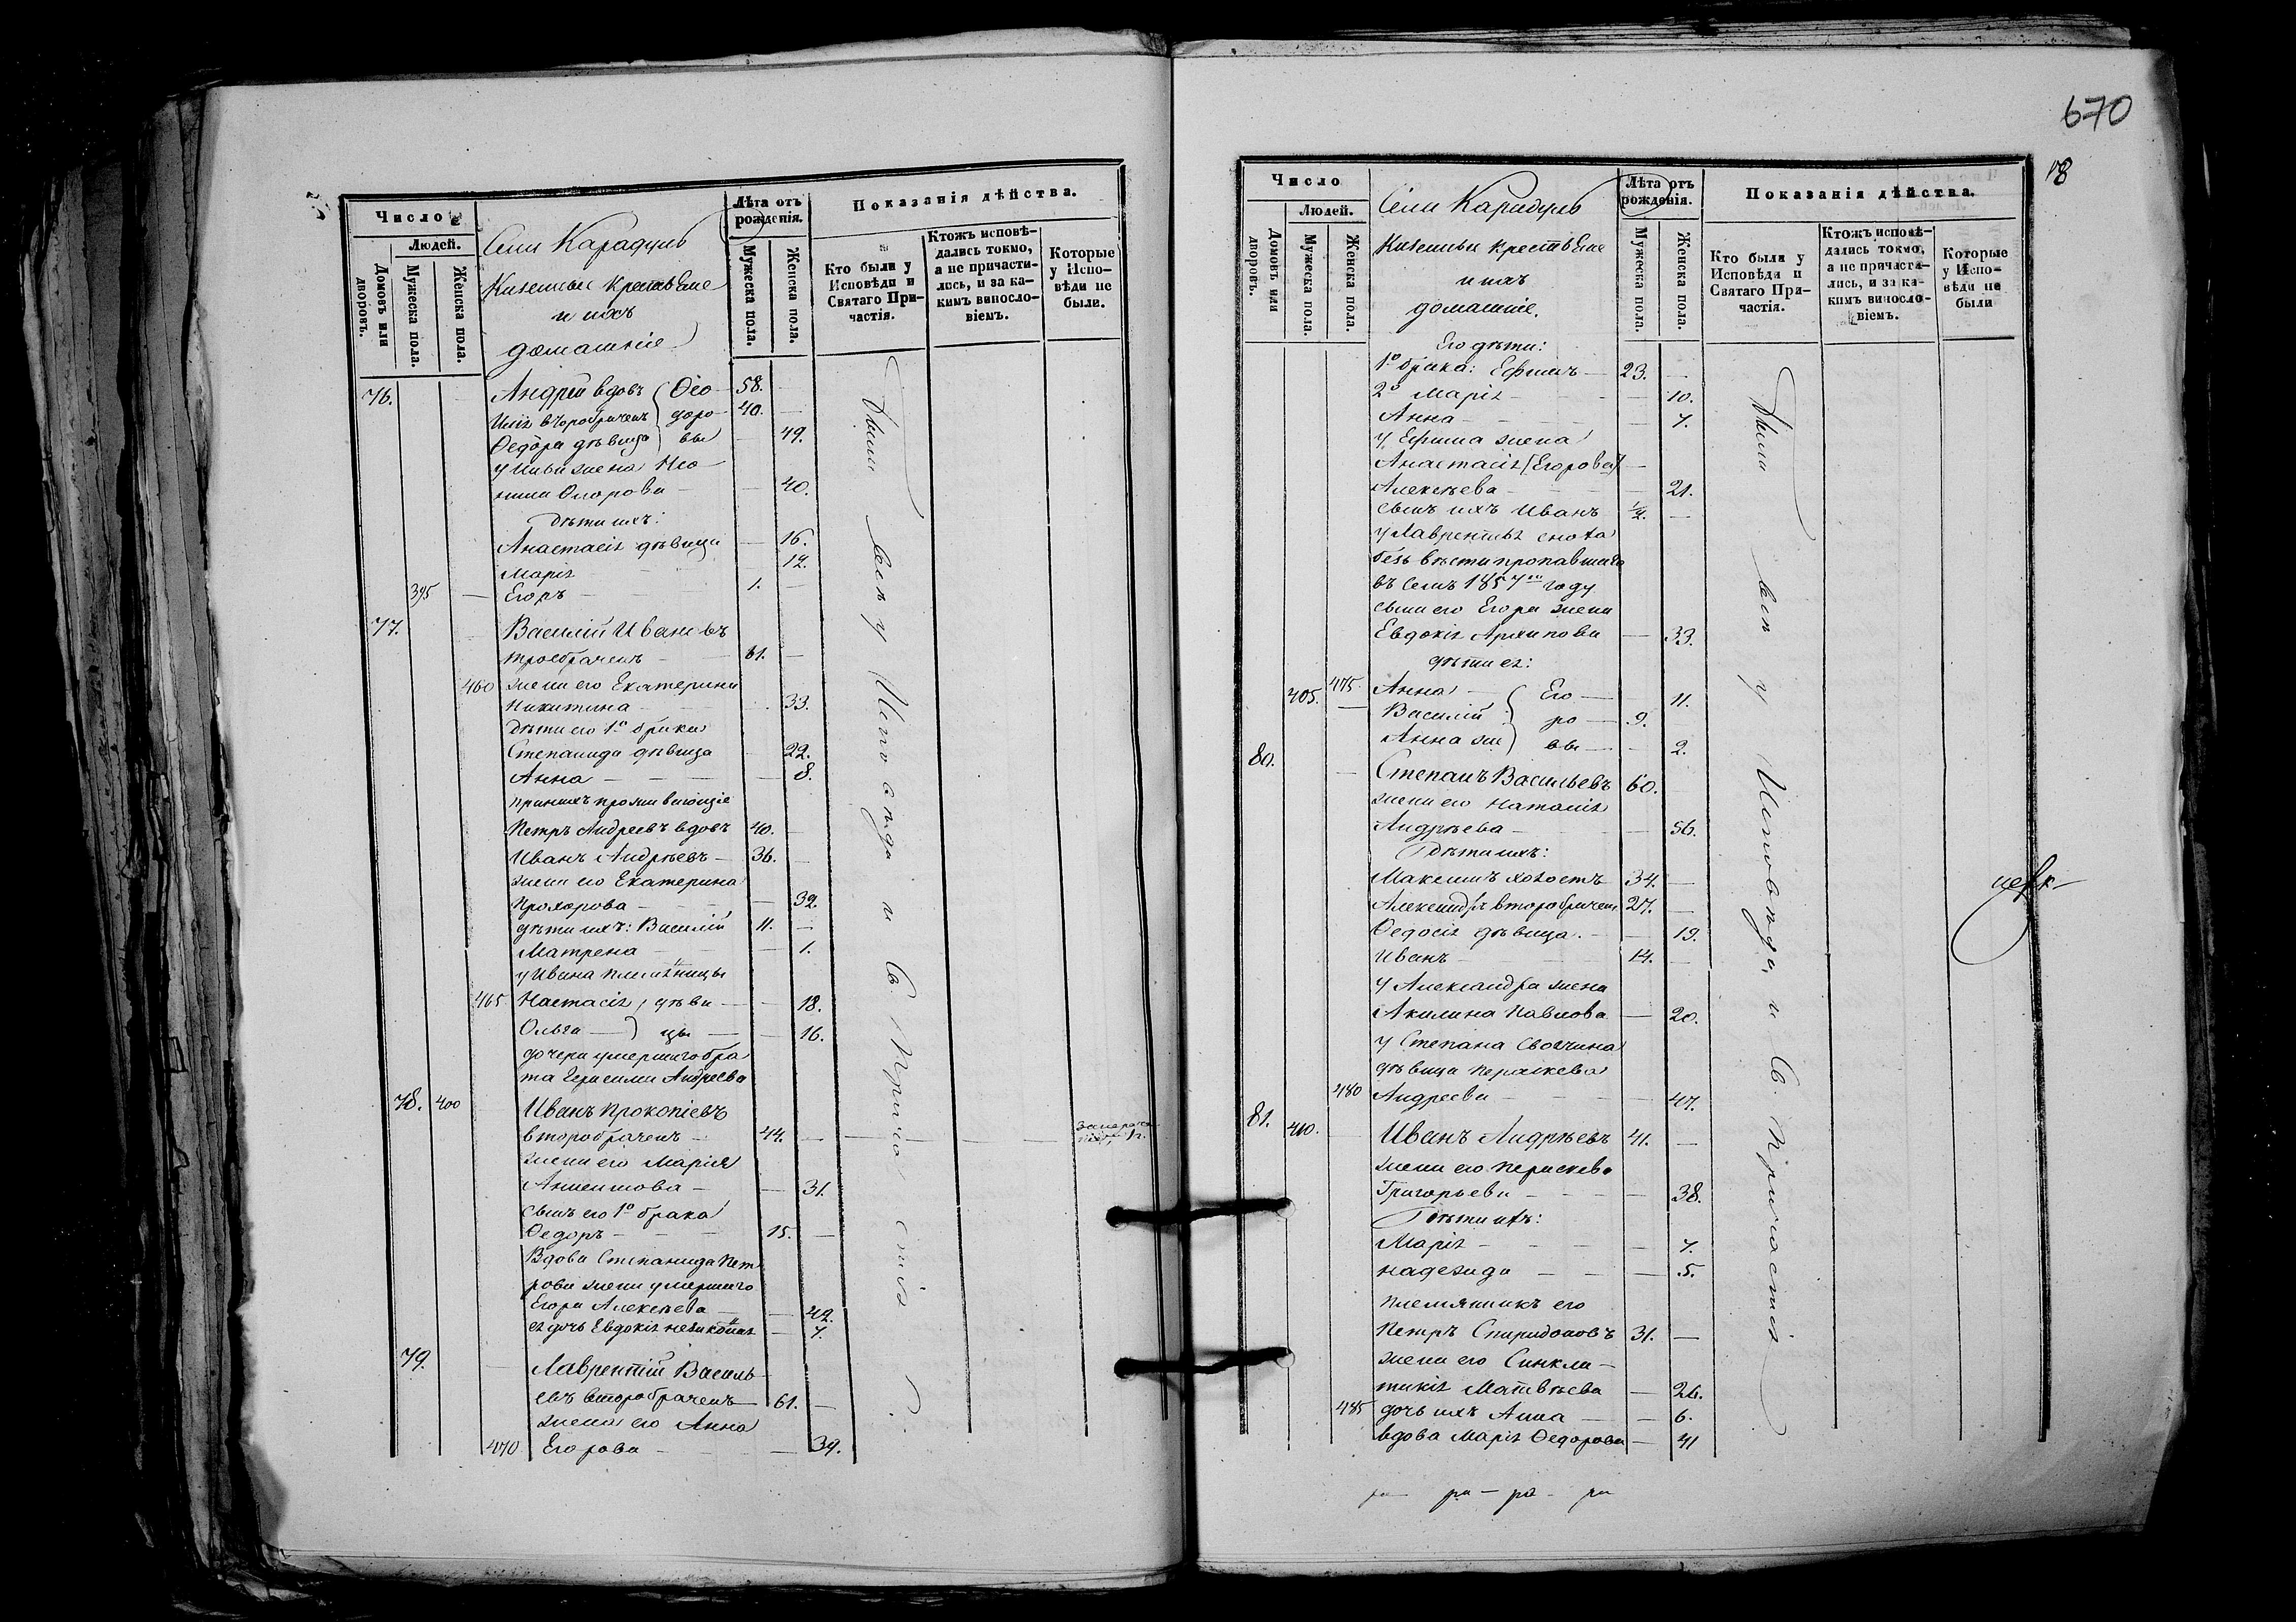 Число
Людей.
Домовъ или дворовъ.
Мужеска пола.
Женска пола.
Села Карадулъ
Казенные крестьяне
и ихъ
домашніе
Лѣта отъ рожденія.
Мужеска пола.
Женска пола.
Показанія дѣйства.
Кто были у Исповѣди и Святаго При-частія.
Ктожъ исповѣ-дались токмо, а не причасти-лись, и за ка-кимъ винсло-віемъ.
Которые у Испо-вѣди не были.
76. Андрей вдовъ Ѳео- 58.
Илія второбраченъ доро- 40.
Ѳедора дѣвица вы 49.
у Ильи жена Нео-
нила Егорова 40.
Дѣти ихъ:
Анастасія дѣвица 16.
Марія 12.
395 Егоръ 1.
77. Василій Ивановъ
троебраченъ 61.
460 жена его Екатерина
Никитина 33.
Дѣти его 1го брака
Степанида дѣвица 22.
Анна 8.
при нихъ проживающіе
Петръ Андреевъ вдовъ 40.
Иванъ Андрѣевъ 36.
жена его Екатерина
Прохорова 32.
дѣти ихъ: Василій 11.
Матрена 1.
у Ивана племѣнницы
465 Настасія дѣви- 18.
Ольга цы 16.
дочери умершаго бра
та Герасима Андреева
78. 400 Иванъ Прокопіевъ
второбраченъ 44.
жена его Марія
31.
сынъ его 1го брака
Ѳедоръ 15.
Вдова Степанида Пет
рова жена умершаго
Егора Алексѣева 42.
ея дочь Евдокія 7.
79. Лаврентій Василь-
евъ второбраченъ 61.
жена его Анна
470 Егорова 39.
Были всѣ у Исповѣди и Св. Причастія.
670
18
Число
Людей.
Домовъ или дворовъ.
Мужеска пола.
Женска пола.
Села Карадулъ
Казенные крестьяне
и ихъ
домашніе.
Лѣта отъ рожденія.
Мужеска пола.
Женска пола.
Показанія дѣйства.
Кто были у Исповѣди и Святаго При-частія.
Ктожъ исповѣ-дались токмо, а не причасти-лись, и за ка-кимъ винсло-віемъ.
Которые у Испо-вѣди не были
Его дѣти:
1го брака: Ефимъ 23.
2го Марія 10.
Анна 7.
у Ефима жена
Анастасія (Егорова)
Алексѣева 21.
сынъ ихъ Иванъ ½.
у Лаврентія сноха
безъ вѣсти пропавшаго
въ семъ 1857мъ году
сына его Егора жена
Евдокія Архипова 33.
дѣти ея:
475. Анна Его- 11.
405. Василій ро- 9.
Анна же вы 2.
80. Степанъ Васильевъ 60.
жена его Наталія
Андрѣева 56.
Дѣти ихъ:
Максимъ холостъ 34.
Александръ второбраченъ 27.
Ѳедосія дѣвица. 19.
Иванъ 14.
у Александра жена
Акилина Павлова 20.
у Степана своячина
дѣвица Параскева
480 Андреева 47.
81. 410. Иванъ Андрѣевъ 41.
жена его Параскева
Григорьева 38.
Дѣти ихъ:
Марія 7.
Надежда 5.
племянникъ его
Петръ Спиридоновъ 31.
жена его Синкли-
тикія Матвѣева 26.
485 дочь ихъ Анна 6.
вдова Марія Ѳедорова 41
Были всѣ у Исповѣди и Св. Причастія
ра — ра — ра — ра